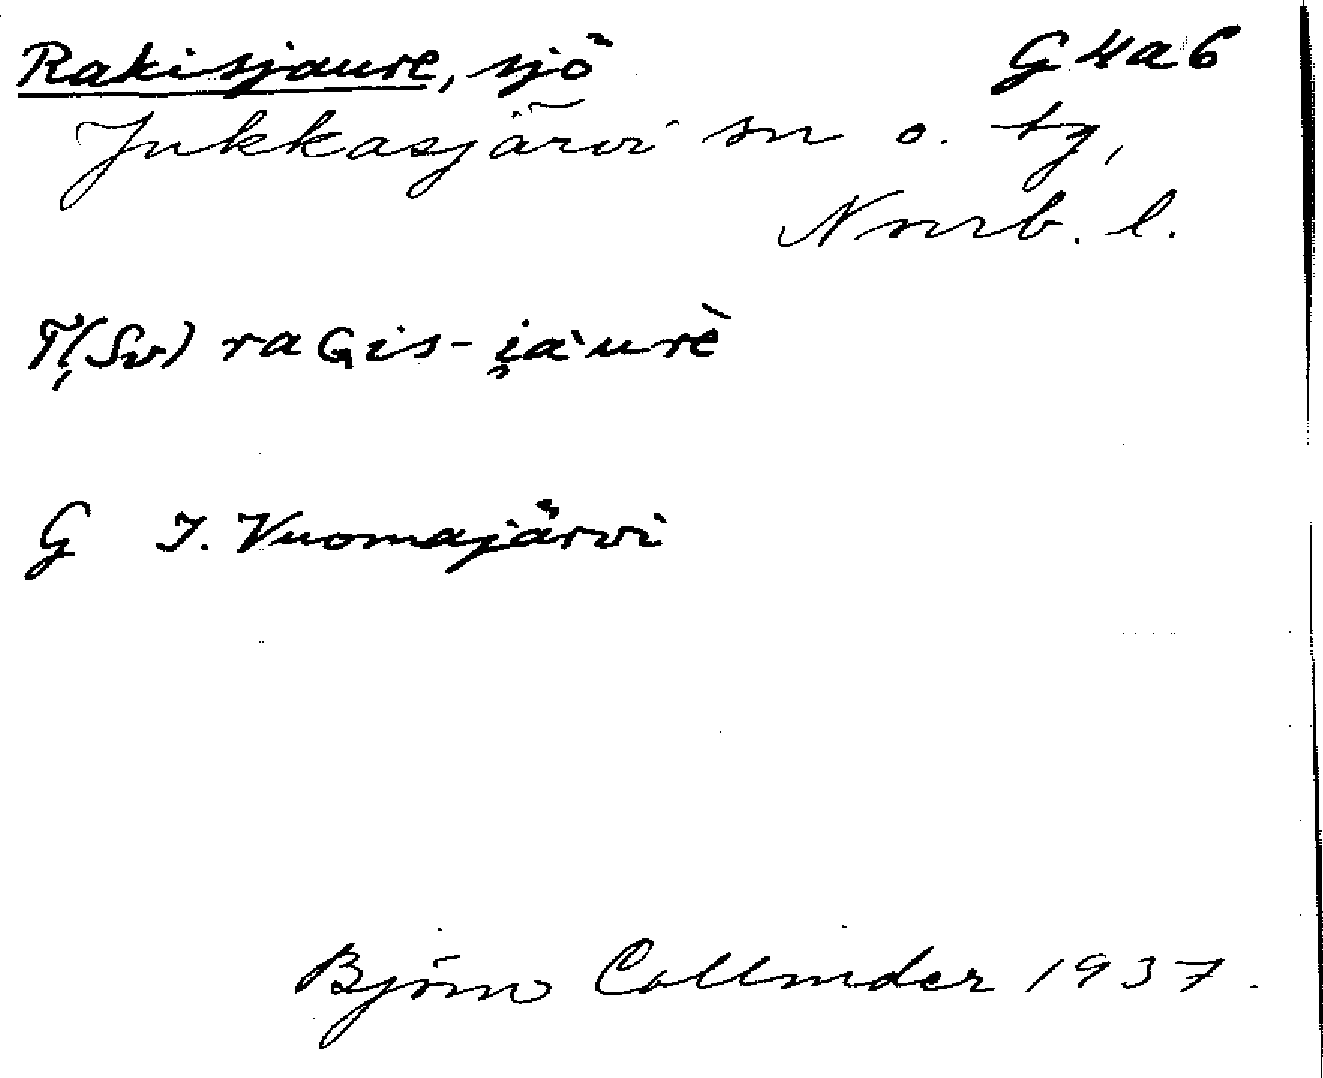 Rakisjaure, sjö G 4 a b
Jukkasjärvi sn o. tg,
Norrb. l.
Ț(Sv) raGis-i̯a`urè
G I. Vuomajärvi
Björn Collinder 1937.